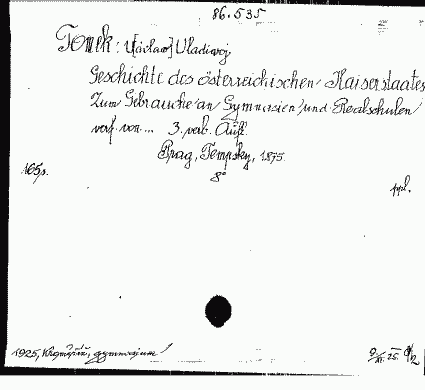 86.535
Tomek: V[áclav] Vladivoj
Geschichte des österreichischen Kaiserstaates
Zum Gebrauche an Gymnasien und Realschulen
verf. von... 3. verb. Aufl.
Prag, Tempsky, 1875.
8°
165 s.
ppl.
1925, Kroměříž, gymnasium